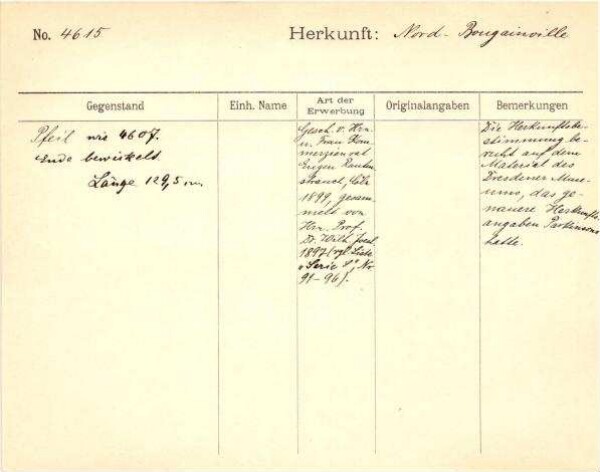 No. 4615
Herkunft: Nord-Bougainville
Gegenstand
Einh. Name
Art der Erwerbung
Originalangaben
Bemerkungen
Pfeil wie 4607.
Ende bewickelt.
Länge 129,5 cm.
Gesch. v. Hrn.
u. Frau Kom-
merzienrat
Eugen Rauten-
strauch, Cöln
1899, gesam-
melt von
Hrn. Prof.
Dr. Wilh. Joest
1897 (vgl. Liste
"Serie S", No.
91-96).
Die Herkunftsbe-
stimmung be-
ruht auf dem
Material des
Dresdener Muse-
ums, das ge-
nauere Herkunfts-
angaben Parkinsons
hatte.